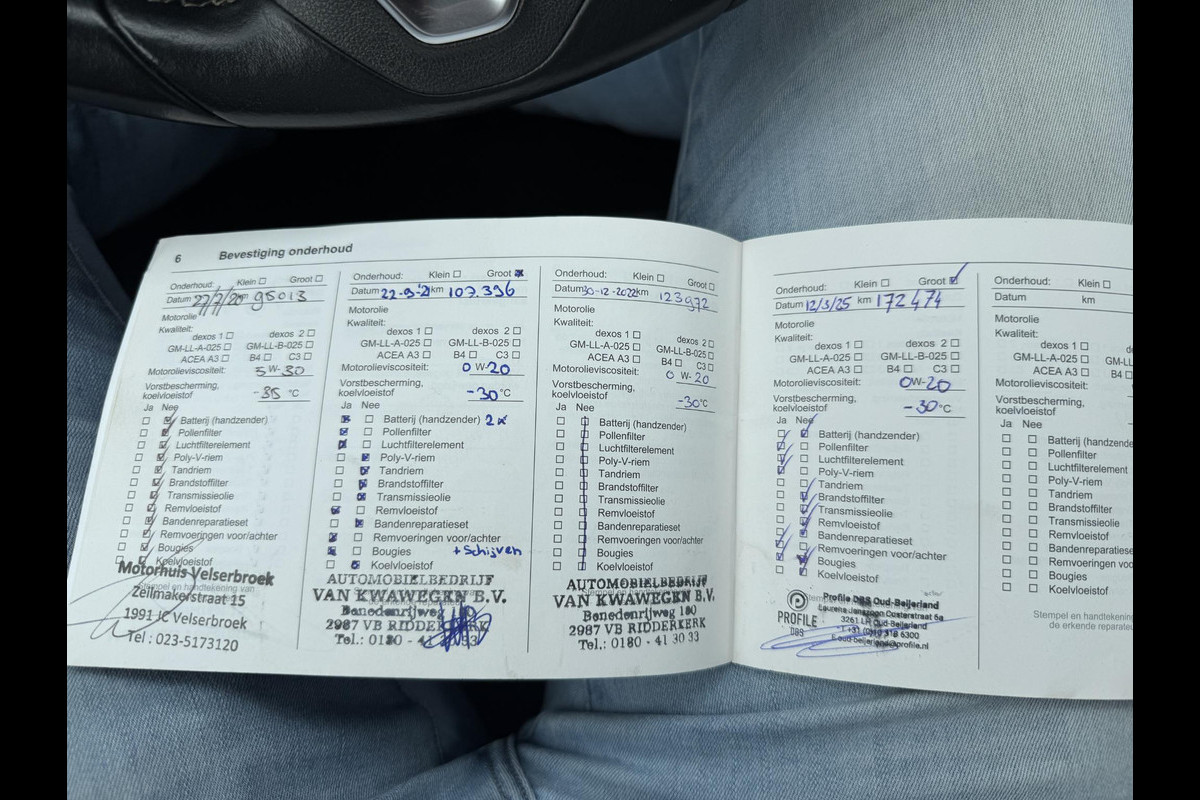 6 Bevestiging onderhoud
Onderhoud: Klein ☐ Groot ☐
Datum 27/7/20 km 95013
Motorolie
Kwaliteit:
dexos 1 ☐ dexos 2 ☐
GM-LL-A-025 ☐ GM-LL-B-025 ☐
ACEA A3 ☐ B4 ☐ C3 ☐
Motorolieviscositeit: 5W-30
Vorstbescherming,
koelvloeistof -35 °C
Ja Nee
Batterij (handzender)
Pollenfilter
Luchtfilterelement
Poly-V-riem
Tandriem
Brandstoffilter
Transmissieolie
Remvloeistof
Bandenreparatieset
Remvoeringen voor/achter
Bougies
Koelvloeistof
Motorhuis Velserbroek
Zeilmakerstraat 15
1991 JC Velserbroek
Tel : 023-5173120
Onderhoud: Klein ☐ Groot ☒
Datum 22-9-21 km 107.396
Motorolie
Kwaliteit:
dexos 1 ☐ dexos 2 ☐
GM-LL-A-025 ☐ GM-LL-B-025 ☐
ACEA A3 ☐ B4 ☐ C3 ☐
Motorolieviscositeit: 0W-20
Vorstbescherming,
koelvloeistof -30 °C
Ja Nee
Batterij (handzender) 2x
Pollenfilter
Luchtfilterelement
Poly-V-riem
Tandriem
Brandstoffilter
Transmissieolie
Remvloeistof
Bandenreparatieset
Remvoeringen voor/achter
Bougies + Schijven
Koelvloeistof
AUTOMOBIELBEDRIJF
VAN KWAWEGEN B.V.
Benedenrijweg
2987 VB RIDDERKERK
Tel.: 0180 - 41 30 33
Onderhoud: Klein ☐ Groot ☐
Datum 30-12-2022 km 123972
Motorolie
Kwaliteit:
dexos 1 ☐ dexos 2 ☐
GM-LL-A-025 ☐ GM-LL-B-025 ☐
ACEA A3 ☐ B4 ☐ C3 ☐
Motorolieviscositeit: 0W-20
Vorstbescherming,
koelvloeistof -30 °C
Ja Nee
Batterij (handzender)
Pollenfilter
Luchtfilterelement
Poly-V-riem
Tandriem
Brandstoffilter
Transmissieolie
Remvloeistof
Bandenreparatieset
Remvoeringen voor/achter
Bougies
Koelvloeistof
AUTOMOBIELBEDRIJF
VAN KWAWEGEN B.V.
Benedenrijweg 180
2987 VB RIDDERKERK
Tel.: 0180 - 41 30 33
Onderhoud: Klein ☐ Groot ☑
Datum 12/3/25 km 172474
Motorolie
Kwaliteit:
dexos 1 ☐ dexos 2 ☐
GM-LL-A-025 ☐ GM-LL-B-025 ☐
ACEA A3 ☐ B4 ☐ C3 ☐
Motorolieviscositeit: 0W-20
Vorstbescherming,
koelvloeistof -30 °C
Ja Nee
Batterij (handzender)
Pollenfilter
Luchtfilterelement
Poly-V-riem
Tandriem
Brandstoffilter
Transmissieolie
Remvloeistof
Bandenreparatieset
Remvoeringen voor/achter
Bougies
Koelvloeistof
PROFILE
DBS
Profile DBS Oud-Beijerland
Laurens Janszoon Costerstraat 6a
3261 LH Oud-Beijerland
6300
E oud-beijerland@profile.nl
Onderhoud: Klein ☐
Datum km
Motorolie
Kwaliteit:
dexos 1 ☐
GM-LL-A-025 ☐
ACEA A3 ☐
Motorolieviscositeit:
Vorstbescherming,
koelvloeistof
Ja Nee
Batterij (handzende
Pollenfilter
Luchtfilterelement
Poly-V-riem
Tandriem
Brandstoffilter
Transmissieolie
Remvloeistof
Bandenreparaties
Remvoeringen vo
Bougies
Koelvloeistof
Stempel en handtekening
de erkende reparateu